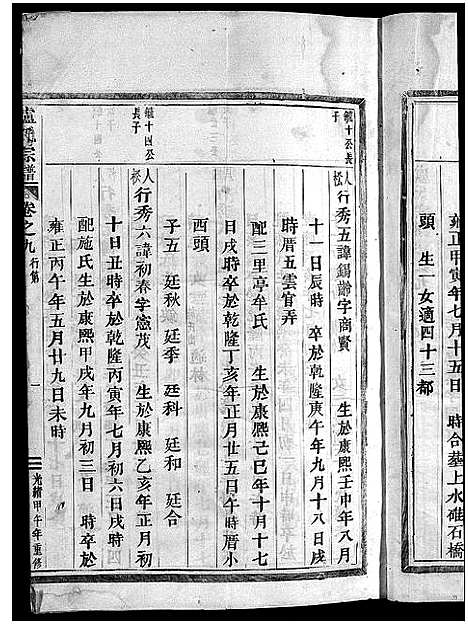 雍正甲寅年七月十五日　時合葬上水碓石橋
頭　生一女適四十三都
毓十公長子
松人
行秀五諱錫譜字商賢　生於康熙壬申年八月
十一日辰時　卒於乾隆庚午年九月十八日戌
時厝五雲官弄
配三里亭牟氏　生於康熙己巳年十月十七
日戌時卒於乾隆丁亥年正月廿五日午時厝小
西頭
子五　廷秋　廷季　廷科　廷和　廷合
毓十四公長子
松人
行秀六諱初春字憲茂　生於康熙乙亥年正月初
十日丑時卒於乾隆丙寅年七月初六日戌時
配施氏生於康熙甲戌年九月初三日　時卒於
雍正丙午年五月廿九日未時
宗譜
卷之九
行第
一
光緒甲午年重修